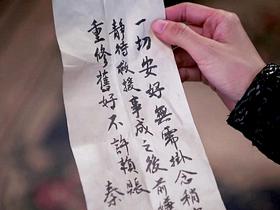 一切安好無需掛念稍
靜待救援事成之後前嫌
重修舊好不許賴賬 秦